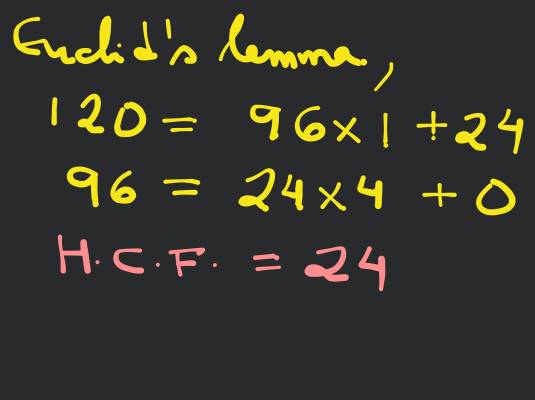 Euclid's lemma,
120 = 96 × 1 + 24
96 = 24 × 4 + 0
H.C.F. = 24